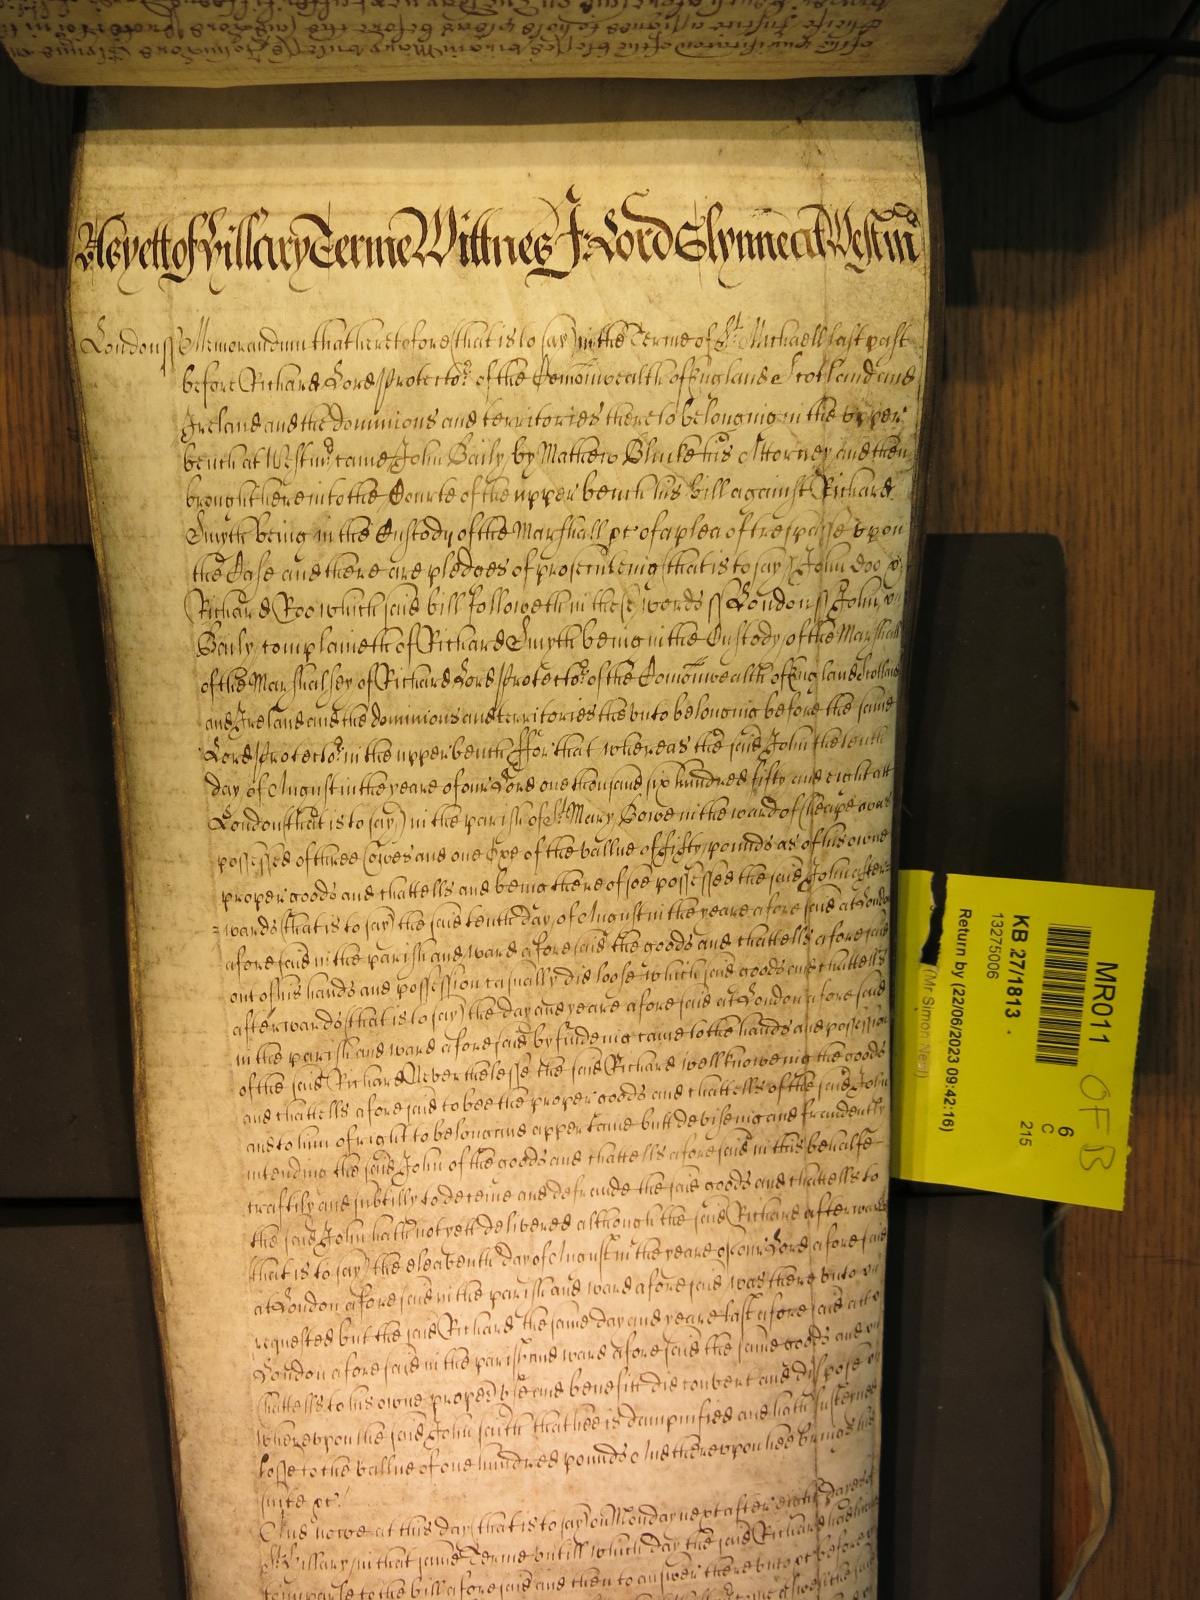 As yett of Hillary Terme Wittnes J: Lord Glynne at Westmr
Londonss Memorandum that heretofore (that is to say) in the Terme of St. Michaell last past
before Richard Lord Protector of the Comonwealth of England Scotland and
Ireland and the dominions and territories thereto belonging in the upper
bench at Westmr came John Baily by Mathew his Attorney and then
brought here into the Courte of the upper bench his bill against Richard
Smyth being in the Custody of the Marshall &c of a plea of trespasse upon
the Case and there are pledges of prosecuteing (that is to say) John Doo &
Richard Roo which said bill followeth in these words ss Londonss John
Baily complaineth of Richard Smyth being in the Custody of the Marshall
of the Marshalsey of Richard Lord Protector of the Comonwealth of England Scotland
and Ireland and the dominions and territories thereunto belonging before the same
Lord Protector in the upper bench ffor that whereas the said John the tenth
day of August in the yeare of our Lord one thousand six hundred fifty and eight att
London (that is to say) in the parish of St Mary Bowe in the ward of Cheape was
possessed of three Cowes and one Oxe of the vallue of fifty pounds as of his owne
proper goods and chattells and being thereof soe possessed the said John after-
=wards (that is to say) the said tenth day of August in the yeare aforesaid at London
aforesaid in the parish and ward aforesaid the goods and chattells aforesaid
out of his hands and possession casually did loose which said goods and chattells
afterwards (that is to say) the day and yeare aforesaid at London aforesaid
in the parish and ward aforesaid by findeing came to the hands and possession
of the said Richard Neverthelesse the said Richard well knoweing the goods
and chattells aforesaid to bee the proper goods and chattells of the said John
and to him of right to belong and appertaine butt deviseing and fraudently
intending the said John of the goods and chattells aforesaid in this behalfe
craftily and subtilly to deceive and defraude the said goods and chattells to
the said John hath not yett delivered although the said Richard afterwards
(that is to say) the eleaventh day of August in the yeare of our Lord aforesaid
at London aforesaid in the parish and ward aforesaid was thereunto
requested but the said Richard the same day and yeare last aforesaid att
London aforesaid in the parish and ward aforesaid the same goods and
chattells to his owne proper use and benefitt did convert and dispose
whereupon the said John saith that hee is dampnified and hath susteyned
losse to the vallue of one hundred pounds And thereupon hee brings his
suite &c.
And nowe at this day (that is to say) on Monday next after eight dayes of
St. Hillary in that same Terme untill which day the said Richard had
to imparle to the bill aforesaid and then to answer thereunto &c before
MR011
6
C
215
KB 27/1813
13275006
Return by (22/06/2023 09:42:16)
(Mr Simon Neal)
OFB